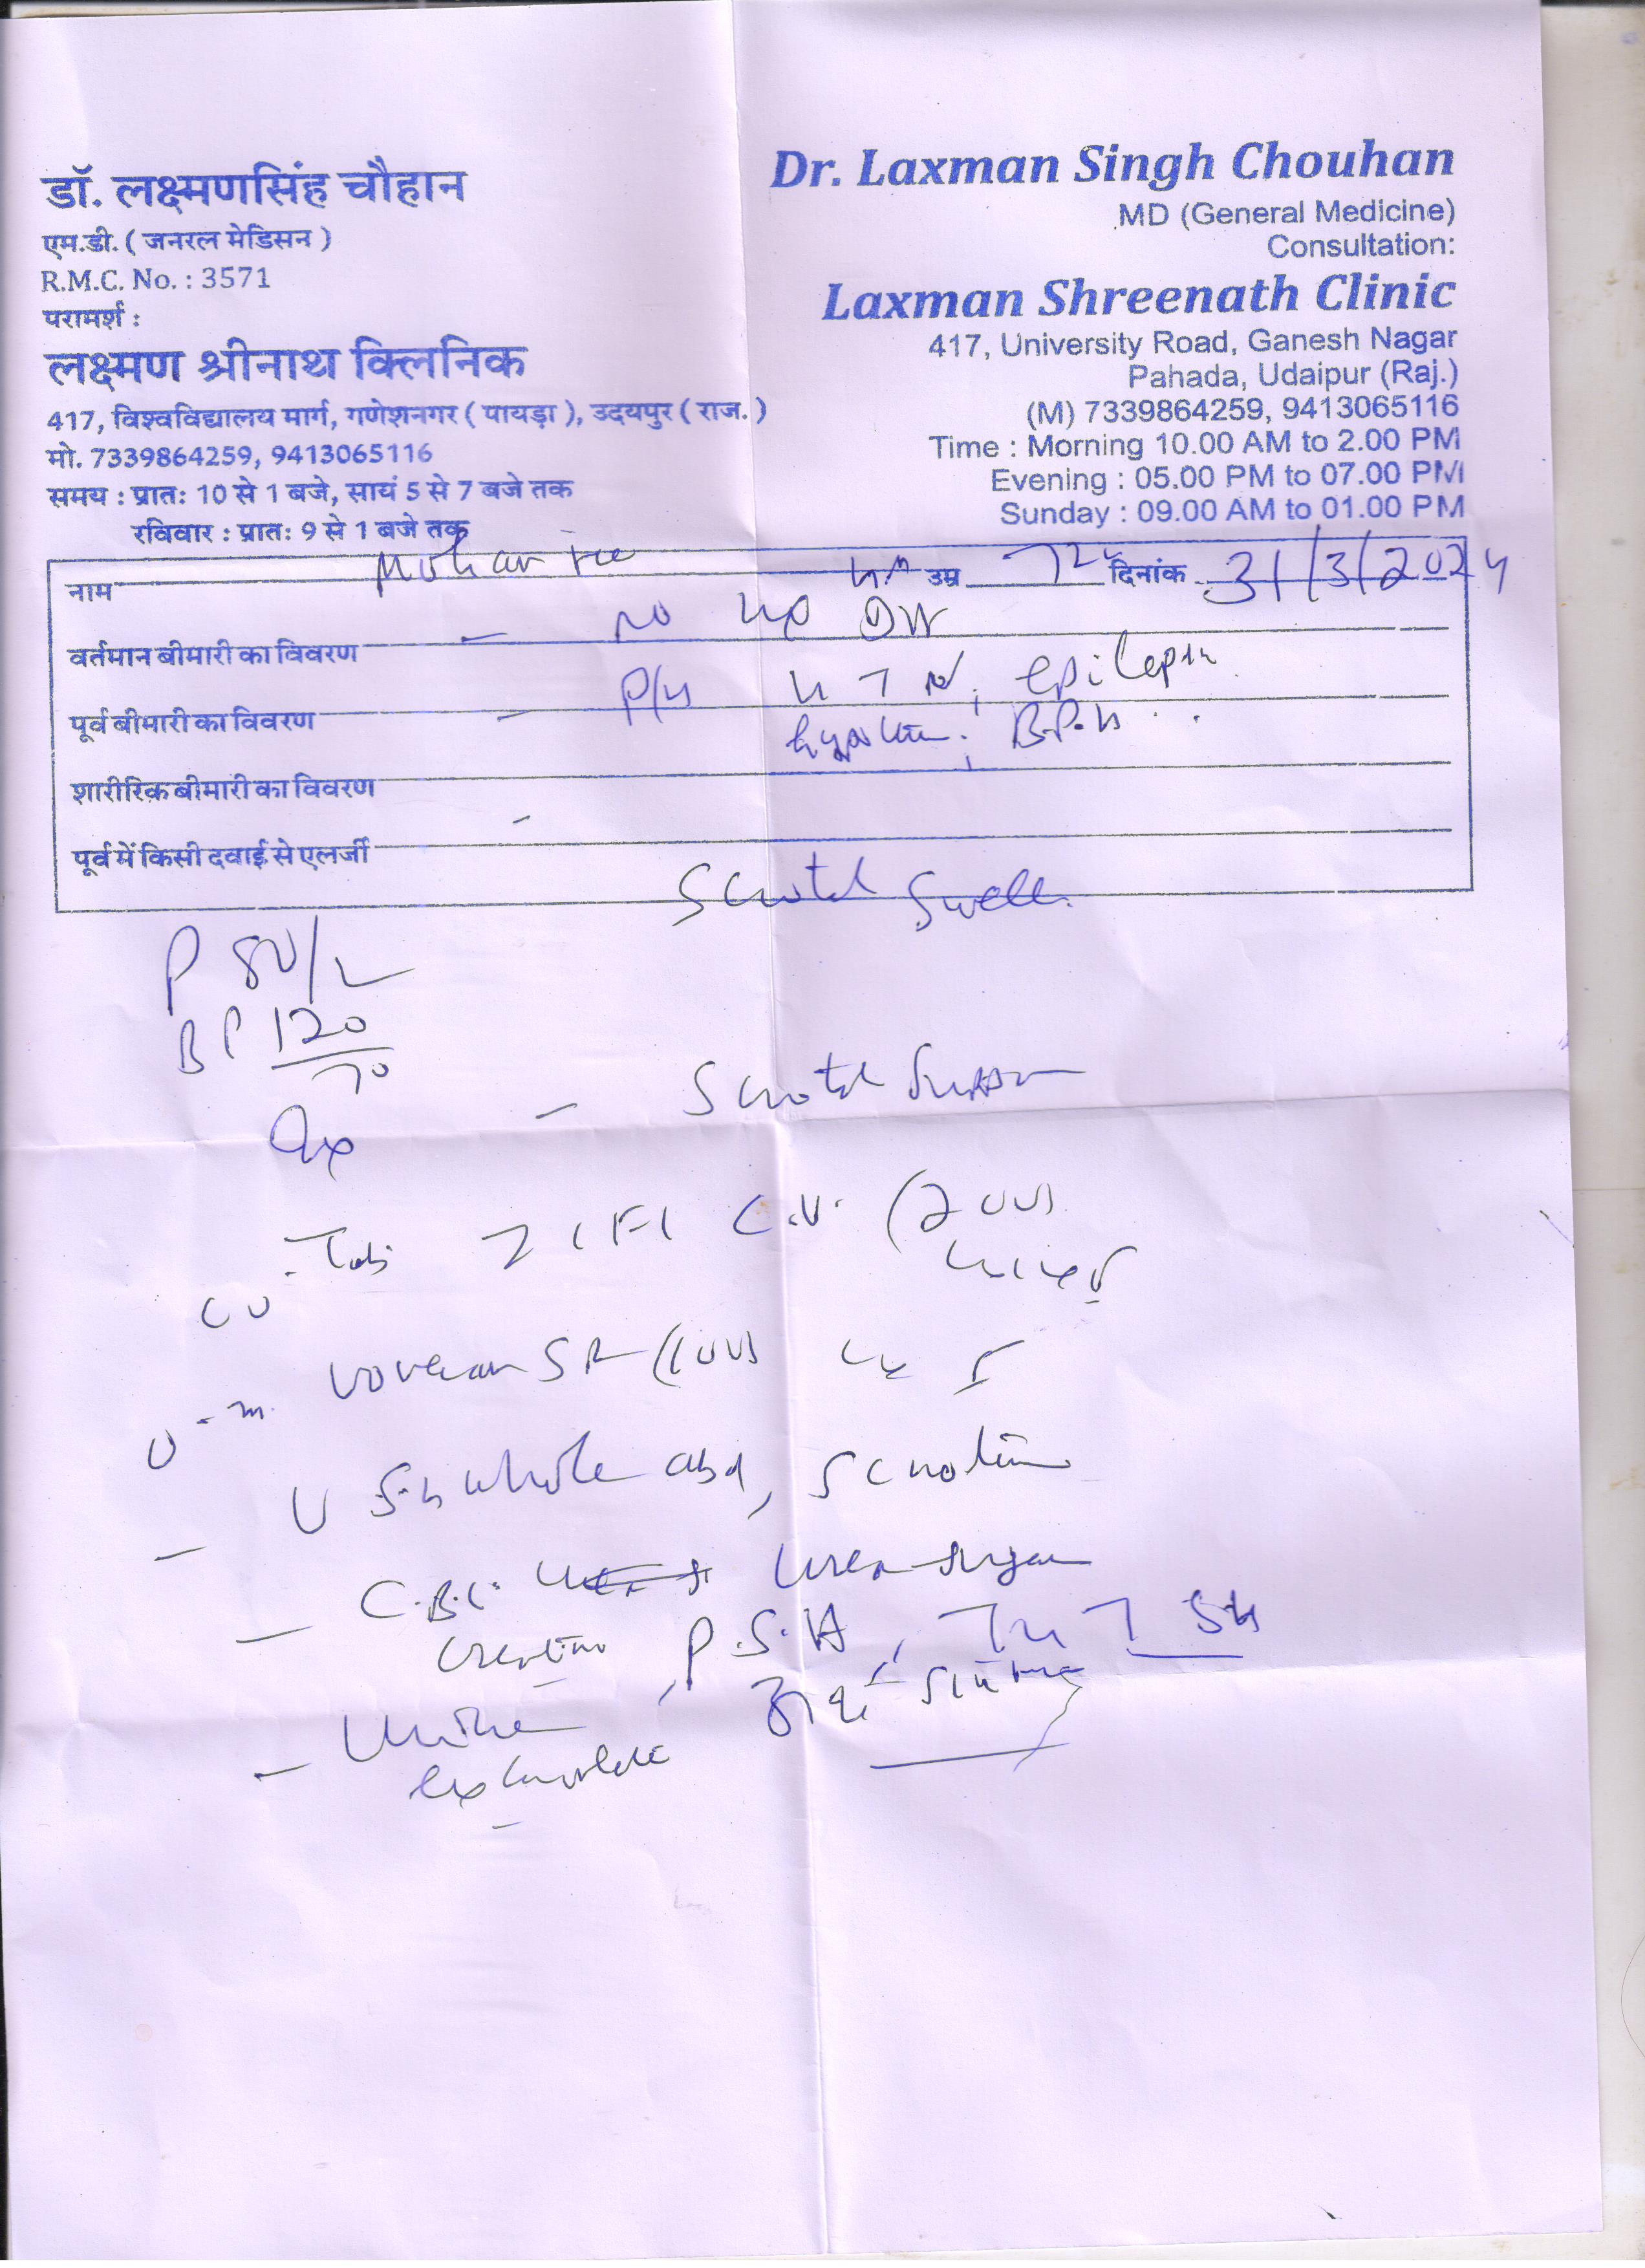 डॉ. लक्ष्मणसिंह चौहान
एम.डी. ( जनरल मेडिसन )
R.M.C. No. : 3571
परामर्श :
लक्ष्मण श्रीनाथ क्लिनिक
417, विश्वविद्यालय मार्ग, गणेशनगर ( पायड़ा ), उदयपुर ( राज. )
मो. 7339864259, 9413065116
समय : प्रातः 10 से 1 बजे, सायं 5 से 7 बजे तक
रविवार : प्रातः 9 से 1 बजे तक
Dr. Laxman Singh Chouhan
MD (General Medicine)
Consultation:
Laxman Shreenath Clinic
417, University Road, Ganesh Nagar
Pahada, Udaipur (Raj.)
(M) 7339864259, 9413065116
Time : Morning 10.00 AM to 2.00 PM
Evening : 05.00 PM to 07.00 PM
Sunday : 09.00 AM to 01.00 PM
नाम उम्र 72 दिनांक 31/3/2024
वर्तमान बीमारी का विवरण - No
पूर्व बीमारी का विवरण - P/H HTN, epilepsy
B.P.H.
शारीरिक बीमारी का विवरण
पूर्व में किसी दवाई से एलर्जी -
Scrotal Swell.
P 80/
BP 120/70
- Scrotal Support
Tab ZIFI C.V. (200)
Voveran SR (100)
- USG whole abd, scrotum
- C.B.C. Urea sugar
creatine, P.S.A, T3 T4 TSH
- Urine